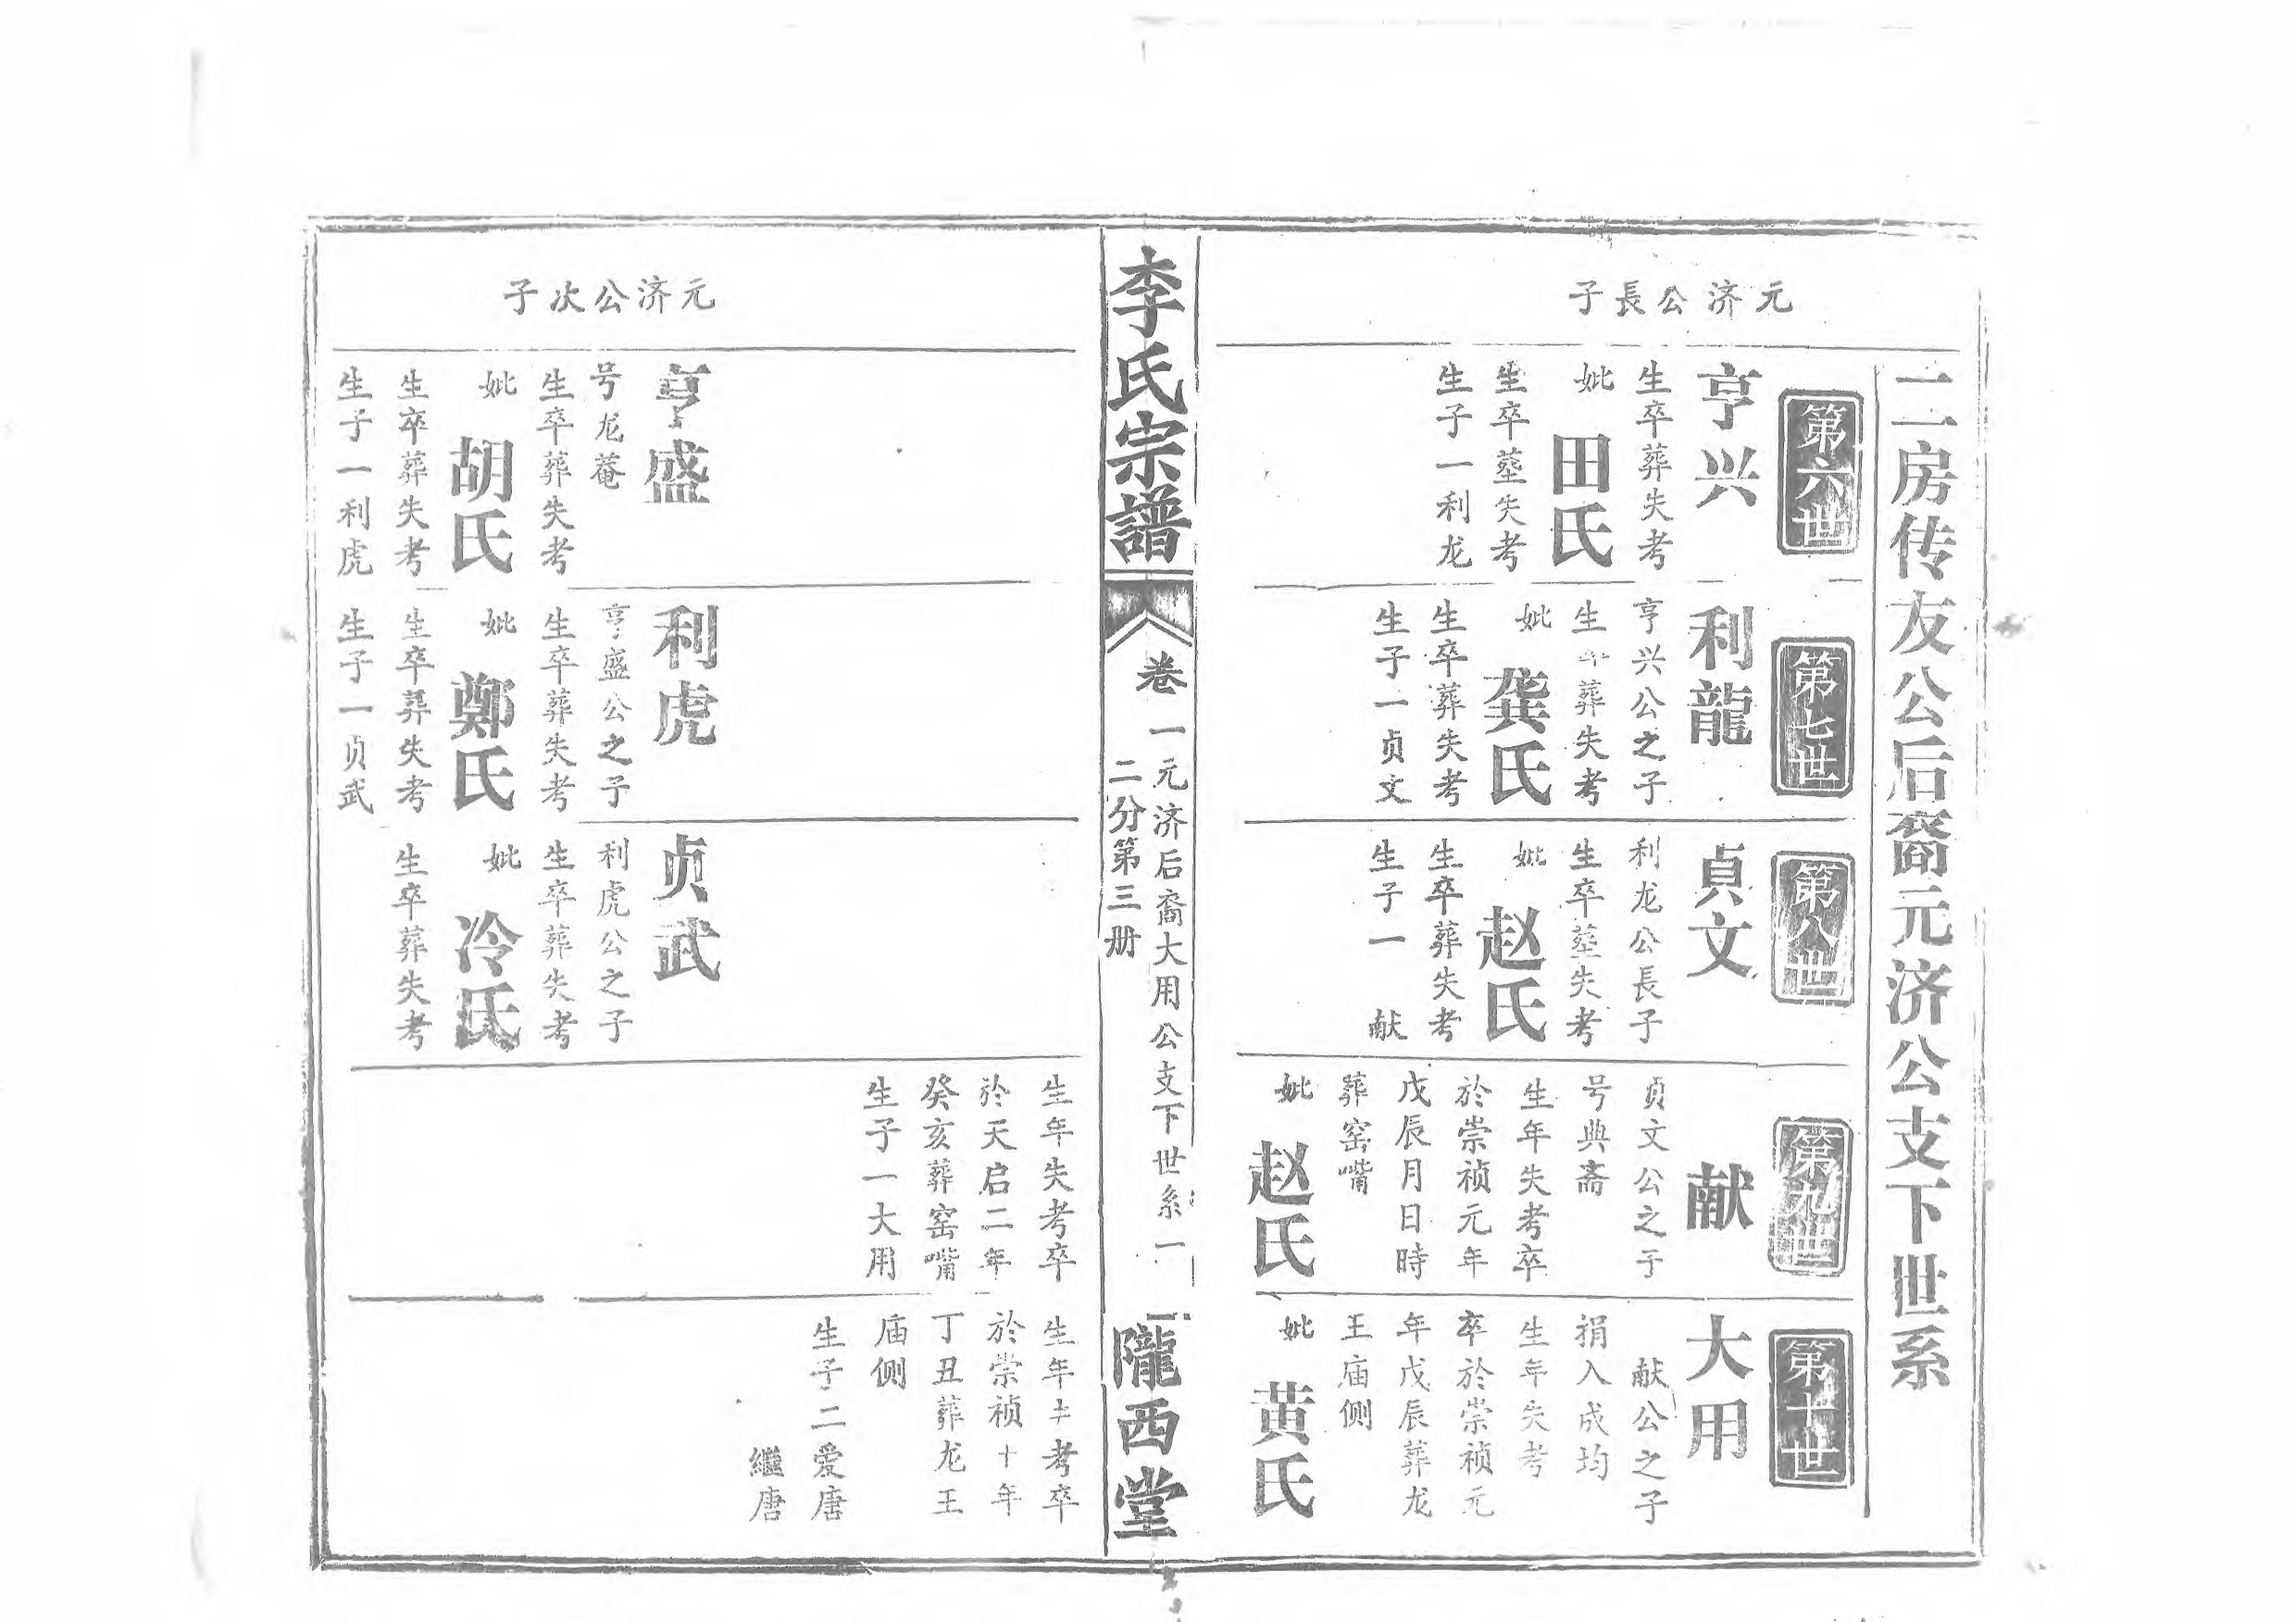 二房传友公后裔元济公支下世系
元济公長子
第六世
亨兴
生卒葬失考
妣 田氏
生卒塟失考
生子一利龙
第七世
利龍
亨兴公之子
生卒葬失考
妣 龚氏
生卒葬失考
生子一贞文
第八世
貞文
利龙公長子
生卒塟失考
妣 赵氏
生卒葬失考
生子一 献
第九世
献
贞文公之子
号典斋
生年失考卒
於崇祯元年
戊辰月日時
葬窑嘴
妣 赵氏
第十世
大用
献公之子
捐入成均
生年失考
卒於崇祯元
年戊辰葬龙
王庙侧
妣 黄氏
李氏宗譜
卷一
元济后裔大用公支下世系一
二分第三册
隴西堂
元济公次子
亨盛
号龙菴
生卒葬失考
妣 胡氏
生卒葬失考
生子一利虎
利虎
亨盛公之子
生卒葬失考
妣 鄭氏
生卒葬失考
生子一贞武
贞武
利虎公之子
生卒葬失考
妣 冷氏
生卒葬失考
生年失考卒
於天启二年
癸亥葬窑嘴
生子一大用
生年 考卒
於崇祯十年
丁丑葬龙王
庙侧
生子二爱唐
繼唐